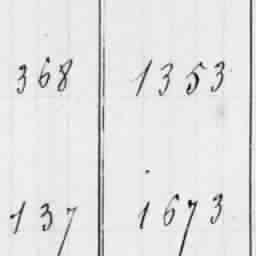 368 1353
137 1673